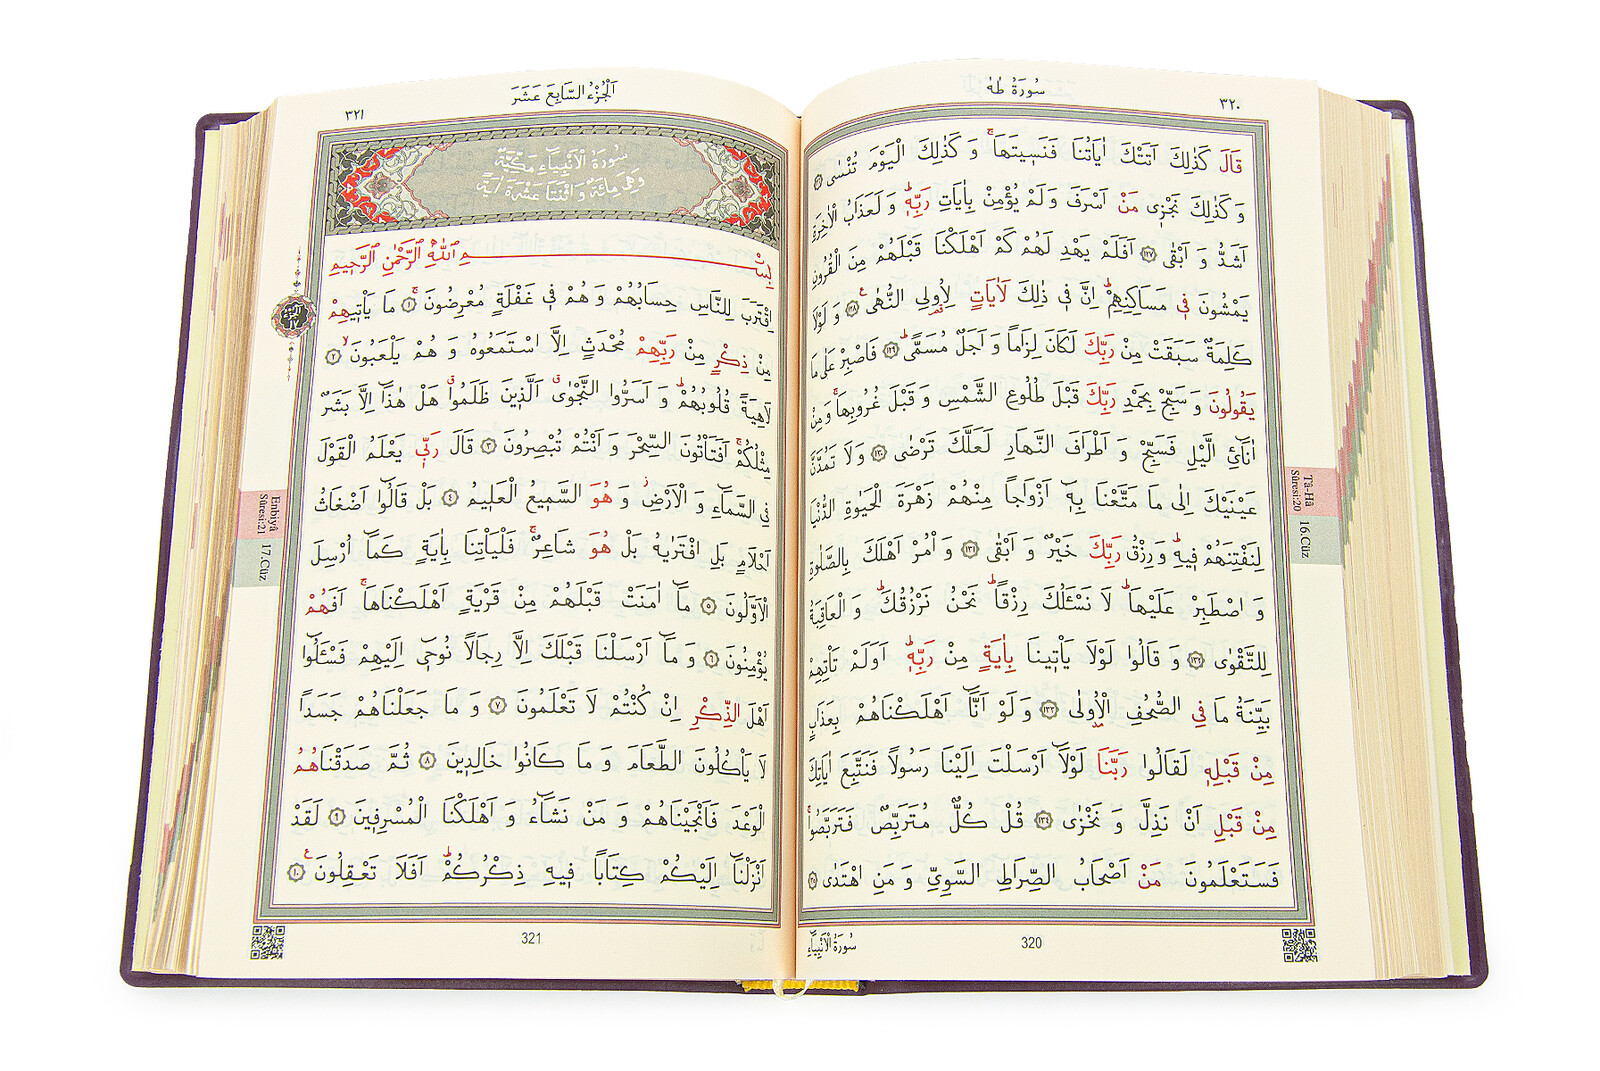 سُورَةُ طٰهٰ
٣٢٠
قَالَ كَذٰلِكَ اَتَتْكَ اٰيَاتُنَا فَنَس۪يتَهَاۚ وَ كَذٰلِكَ الْيَوْمَ تُنْسٰى ﴿١٢٦﴾
وَ كَذٰلِكَ نَجْز۪ى مَنْ اَسْرَفَ وَ لَمْ يُؤْمِنْ بِاٰيَاتِ رَبِّه۪ۜ وَ لَعَذَابُ الْاٰخِرَةِ
اَشَدُّ وَ اَبْقٰى ﴿١٢٧﴾ اَفَلَمْ يَهْدِ لَهُمْ كَمْ اَهْلَكْنَا قَبْلَهُمْ مِنَ الْقُرُونِ
يَمْشُونَ ف۪ى مَسَاكِنِهِمْۜ اِنَّ ف۪ى ذٰلِكَ لَاٰيَاتٍ لِاُو۬لِى النُّهٰى ﴿١٢٨﴾ وَ لَوْلَا
كَلِمَةٌ سَبَقَتْ مِنْ رَبِّكَ لَكَانَ لِزَاماً وَ اَجَلٌ مُسَمًّىۜ ﴿١٢٩﴾ فَاصْبِرْ عَلٰى مَا
يَقُولُونَ وَ سَبِّحْ بِحَمْدِ رَبِّكَ قَبْلَ طُلُوعِ الشَّمْسِ وَ قَبْلَ غُرُوبِهَاۚ وَ مِنْ
اٰنَٓائِ الَّيْلِ فَسَبِّحْ وَ اَطْرَافَ النَّهَارِ لَعَلَّكَ تَرْضٰى ﴿١٣٠﴾ وَ لَا تَمُدَّنَّ
عَيْنَيْكَ اِلٰى مَا مَتَّعْنَا بِه۪ٓ اَزْوَاجاً مِنْهُمْ زَهْرَةَ الْحَيٰوةِ الدُّنْيَا
لِنَفْتِنَهُمْ ف۪يهِۜ وَ رِزْقُ رَبِّكَ خَيْرٌ وَ اَبْقٰى ﴿١٣١﴾ وَ اْمُرْ اَهْلَكَ بِالصَّلٰوةِ
وَ اصْطَبِرْ عَلَيْهَاۜ لَا نَسْـَٔلُكَ رِزْقاًۜ نَحْنُ نَرْزُقُكَۜ وَ الْعَاقِبَةُ
لِلتَّقْوٰى ﴿١٣٢﴾ وَ قَالُوا لَوْلَا يَاْت۪ينَا بِاٰيَةٍ مِنْ رَبِّه۪ۜ اَوَلَمْ تَاْتِهِمْ
بَيِّنَةُ مَا فِى الصُّحُفِ الْاُو۫لٰى ﴿١٣٣﴾ وَ لَوْ اَنَّٓا اَهْلَكْنَاهُمْ بِعَذَابٍ
مِنْ قَبْلِه۪ لَقَالُوا رَبَّنَا لَوْلَٓا اَرْسَلْتَ اِلَيْنَا رَسُولاً فَنَتَّبِعَ اٰيَاتِكَ
مِنْ قَبْلِ اَنْ نَذِلَّ وَ نَخْزٰى ﴿١٣٤﴾ قُلْ كُلٌّ مُتَرَبِّصٌ فَتَرَبَّصُواۚ
فَسَتَعْلَمُونَ مَنْ اَصْحَابُ الصِّرَاطِ السَّوِىِّ وَ مَنِ اهْتَدٰى ﴿١٣٥﴾
سُورَةُ الْاَنْبِيَٓاءِ
320
Tâ-Hâ
Sûresi:20
16.Cüz
اَلْجُزْءُ السَّابِعَ عَشَرَ
٣٢١
سُورَةُ الْاَنْبِيَٓاءِ مَكِّيَّةٌ
وَهِىَ مِائَةٌ وَ اثْنَتَا عَشْرَةَ اٰيَةً
بِسْمِ اللّٰهِ الرَّحْمٰنِ الرَّح۪يمِ
اِقْتَرَبَ لِلنَّاسِ حِسَابُهُمْ وَ هُمْ ف۪ى غَفْلَةٍ مُعْرِضُونَۚ ﴿١﴾ مَا يَاْت۪يهِمْ
مِنْ ذِكْرٍ مِنْ رَبِّهِمْ مُحْدَثٍ اِلَّا اسْتَمَعُوهُ وَ هُمْ يَلْعَبُونَۙ ﴿٢﴾
لَاهِيَةً قُلُوبُهُمْۜ وَ اَسَرُّوا النَّجْوٰىۗ اَلَّذ۪ينَ ظَلَمُواۗ هَلْ هٰذَٓا اِلَّا بَشَرٌ
مِثْلُكُمْۚ اَفَتَاْتُونَ السِّحْرَ وَ اَنْتُمْ تُبْصِرُونَ ﴿٣﴾ قَالَ رَبّ۪ى يَعْلَمُ الْقَوْلَ
فِى السَّمَٓاءِ وَ الْاَرْضِۘ وَ هُوَ السَّم۪يعُ الْعَل۪يمُ ﴿٤﴾ بَلْ قَالُٓوا اَضْغَاثُ
اَحْلَامٍ بَلِ افْتَرٰيهُ بَلْ هُوَ شَاعِرٌۚ فَلْيَاْتِنَا بِاٰيَةٍ كَمَٓا اُرْسِلَ
الْاَوَّلُونَ ﴿٥﴾ مَٓا اٰمَنَتْ قَبْلَهُمْ مِنْ قَرْيَةٍ اَهْلَكْنَاهَاۚ اَفَهُمْ
يُؤْمِنُونَ ﴿٦﴾ وَ مَٓا اَرْسَلْنَا قَبْلَكَ اِلَّا رِجَالاً نُوح۪ٓى اِلَيْهِمْ فَسْـَٔلُٓوا
اَهْلَ الذِّكْرِ اِنْ كُنْتُمْ لَا تَعْلَمُونَ ﴿٧﴾ وَ مَا جَعَلْنَاهُمْ جَسَداً
لَا يَاْكُلُونَ الطَّعَامَ وَ مَا كَانُوا خَالِد۪ينَ ﴿٨﴾ ثُمَّ صَدَقْنَاهُمُ
الْوَعْدَ فَاَنْجَيْنَاهُمْ وَ مَنْ نَشَٓاءُ وَ اَهْلَكْنَا الْمُسْرِف۪ينَ ﴿٩﴾ لَقَدْ
اَنْزَلْنَٓا اِلَيْكُمْ كِتَاباً ف۪يهِ ذِكْرُكُمْۜ اَفَلَا تَعْقِلُونَ۟ ﴿١٠﴾
321
Enbiyâ
Sûresi:21
17.Cüz